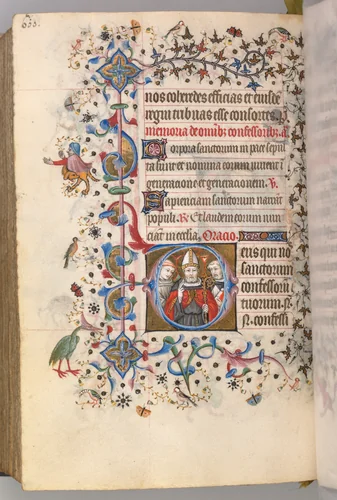 nos coheredes efficias et eiusde
regni tribuas esse consortes. p
memoria de omnibus confessoribus. a.
Corpora sanctorum in pace sepul
ta sunt et nomina eorum vivent in
generacione et generacionem. V.
Sapienciam sanctorum narrent
populi. R. Et laudem eorum nun
ciat ecclesia, Oracio.
Deus qui no
sanctorum
confessoru
tuorum. N.
N. confessi